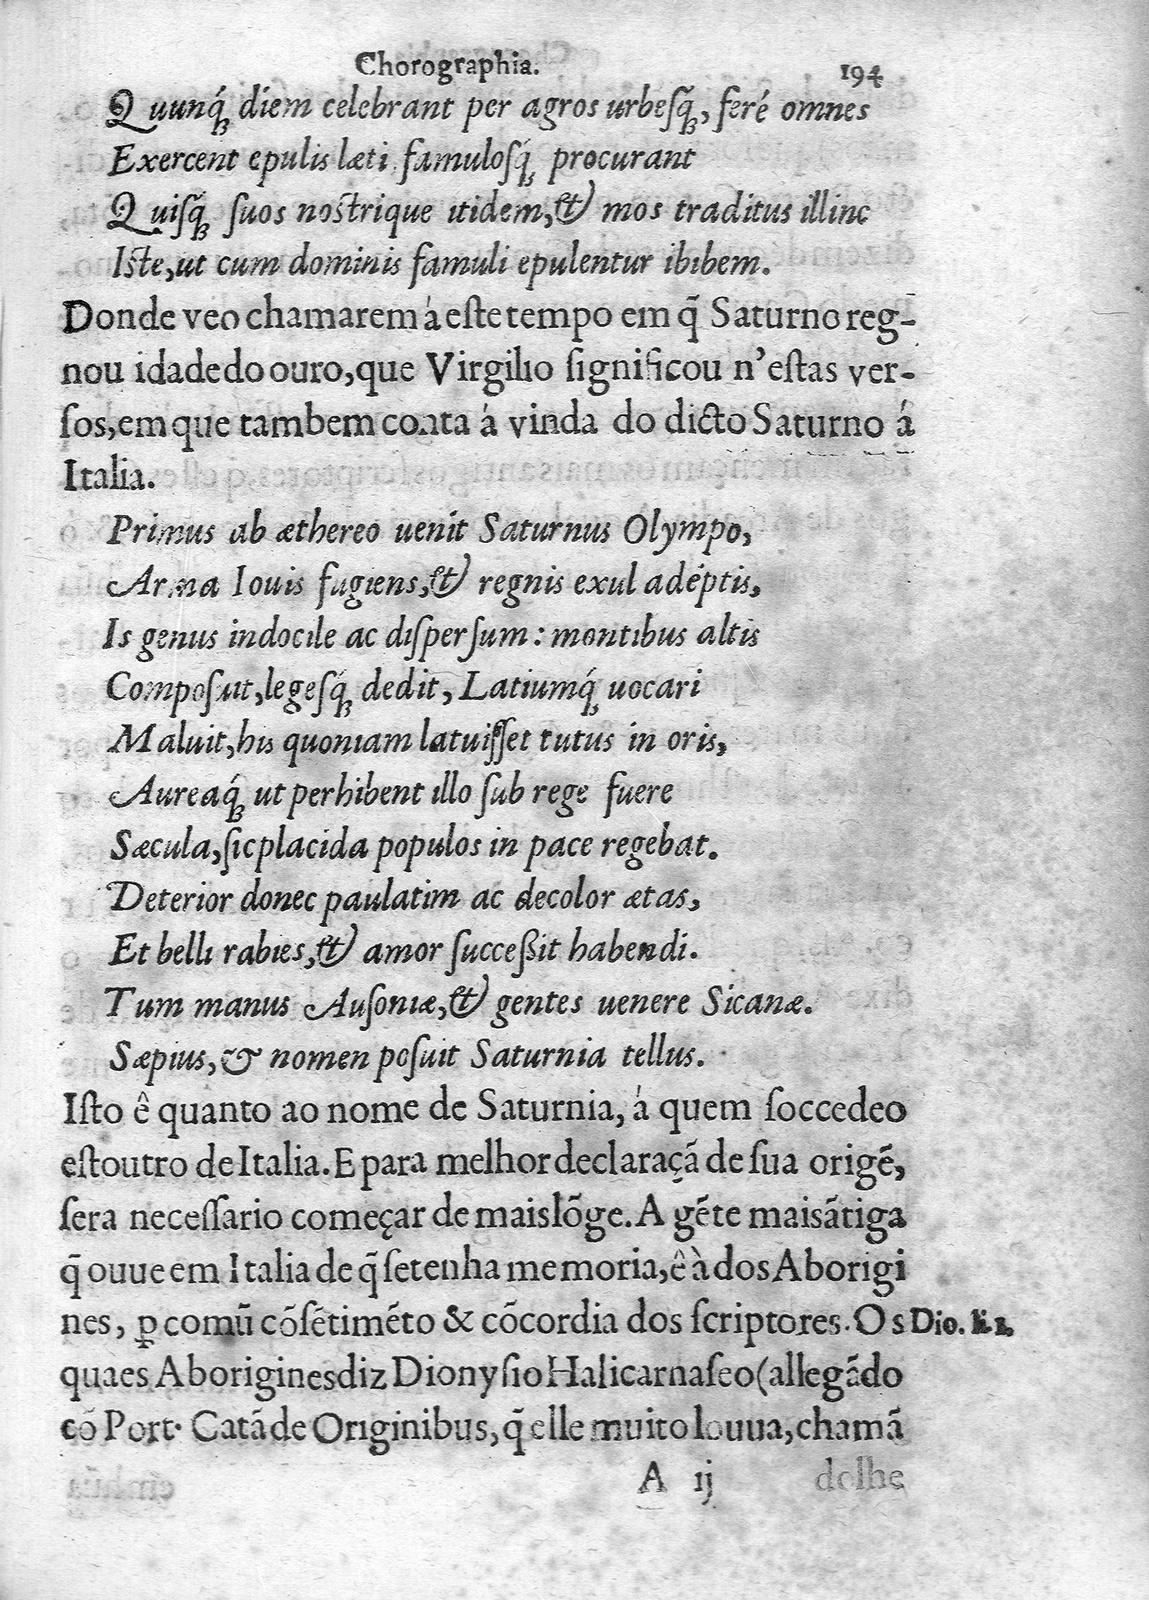 Chorographia. 194
Quunq́; diem celebrant per agros urbeſq́;, feré omnes
Exercent epulis læti famuloſq́; procurant
Quiſq́; ſuos noſtrique itidem, & mos traditus illinc
Iſte, ut cum dominis famuli epulentur ibibem.
Donde veo chamarem á eſte tempo em q̃ Saturno reg-
nou idade do ouro, que Virgilio ſignificou n'eſtas ver-
ſos, em que tambem conta á vinda do dicto Saturno á
Italia.
Primus ab æthereo uenit Saturnus Olympo,
Arma Iouis fugiens, & regnis exul adéptis,
Is genus indocile ac diſperſum: montibus altis
Compoſuit, legeſq́; dedit, Latiumq́; uocari
Maluit, his quoniam latuiſſet tutus in oris,
Aureaq́; ut perhibent illo ſub rege fuere
Sæcula, ſic placida populos in pace regebat.
Deterior donec paulatim ac decolor ætas,
Et belli rabies, & amor ſucceßit habendi.
Tum manus Auſoniæ, & gentes uenere Sicanæ.
Sæpius, & nomen poſuit Saturnia tellus.
Iſto ê quanto ao nome de Saturnia, á quem ſoccedeo
eſtoutro de Italia. E para melhor declaraçã de ſua origẽ,
ſera neceſſario começar de mais lõge. A gẽte mais ãtiga
q̃ ouue em Italia de q̃ ſe tenha memoria, ê à dos Aborigi
nes, ꝑ comũ cõſẽtimẽto & cõcordia dos ſcriptores. Os Dio. li. 1.
quaes Aborigines diz Dionyſio Halicarnaſeo (allegãdo
cõ Port. Catã de Originibus, q̃ elle muito louua, chamã
A ij dolhe